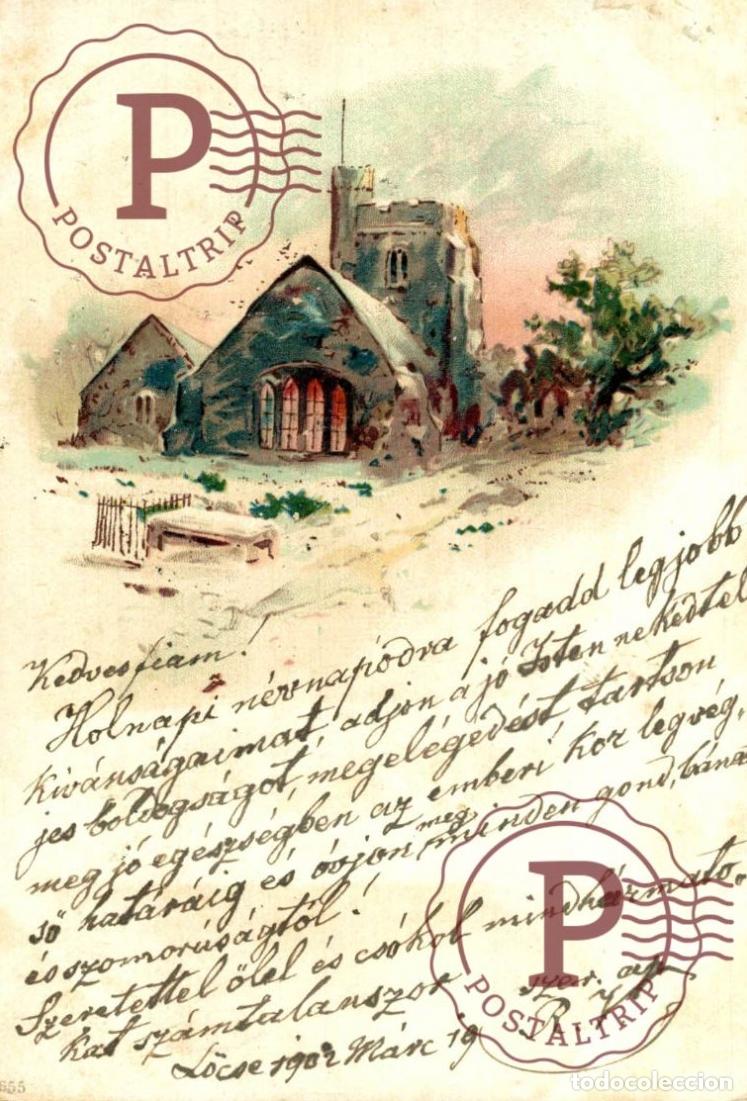 P
POSTALTRIP
Kedves fiam!
Holnapi névnapodra fogadd legjobb
kivánságaimat, adjon a jó Isten neked tel
jes boldogságot, megelégedést, tartson
meg jó egészségben az emberi kor legvég,
ső határáig és óvjon meg minden gond, bána
és szomorúságtól!
Szeretettel ölel és csókol mindhármato,
kat számtalanszor szer. apa
Lőcse 1902 Márc 19
P
POSTALTRIP
655
todocoleccion